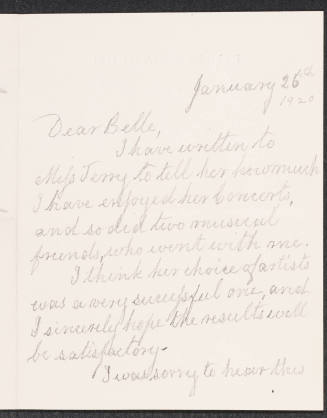 January 26th
1920
Dear Belle,
I have written to
Miss Terry to tell her how much
I have enjoyed her Concerts,
and so did two musical
friends, who went with me.
I think her choice of artists
was a very successful one, and
I sincerely hope the results will
be satisfactory.
I was sorry to hear this